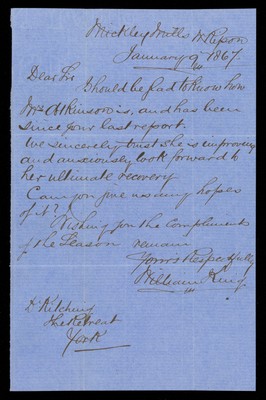 Mickley Mills N. Ripon
January 9th 1867.
Dear Sir
I should be glad to know how
Mrs Atkinson is, and has been
since your last report.
We sincerely trust she is improving
and anxiously look forward to
her ultimate recovery
Can you give us any hopes
of it?
Wishing you the compliments
of the Season remain
Yours Respectfully
William King
Dr Kitching
The Retreat
York